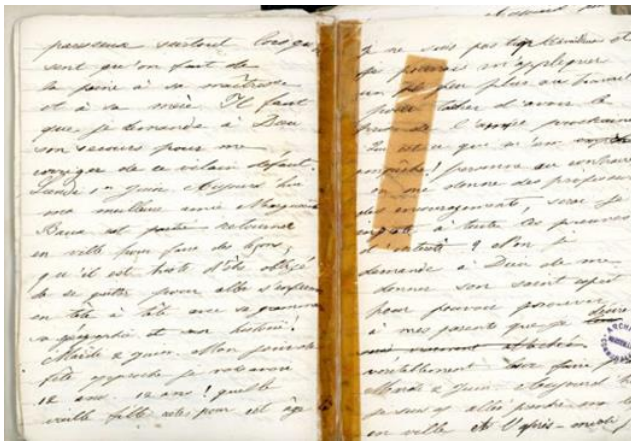 paresseux surtout lorsqu
sent qu'on fait de
la peine à sa maîtresse
et à sa mère. Il faut
que je demande à Dieu
son secours pour me
corriger de ce vilain défaut.
Lundi 1er Juin. Aujourd'hui
ma meilleure amie Marguerite
est partie retourner
en ville pour faire des
qu'il est triste d'être obligé
de se quitter pour aller s'enfermer
en tête à tête avec sa grammaire
sa géographie et son histoire!
Mardi 2 Juin. Mon
fête approche je vais avoir
12 ans. 12 ans! quelle
vieille fille cela pour cet âge
Je ne suis pas trop
je pourrais m'appliquer
un peu plus au travail
pour tâcher d'avoir le
prix de l'année prochaine
Qu'est ce que m'en
empêche! personne au contraire
on me donne des professeurs
des encouragements, serai je
ingrate à toutes ces preuves
d' ? Non je
demande à Dieu de me
donner son saint esprit
pour pouvoir prouver
à mes parents que je désire
véritablement leur faire
Mardi 2 Juin. Aujourd'hui
je suis allée prendre ma
en ville. L'après-midi
ARCHI